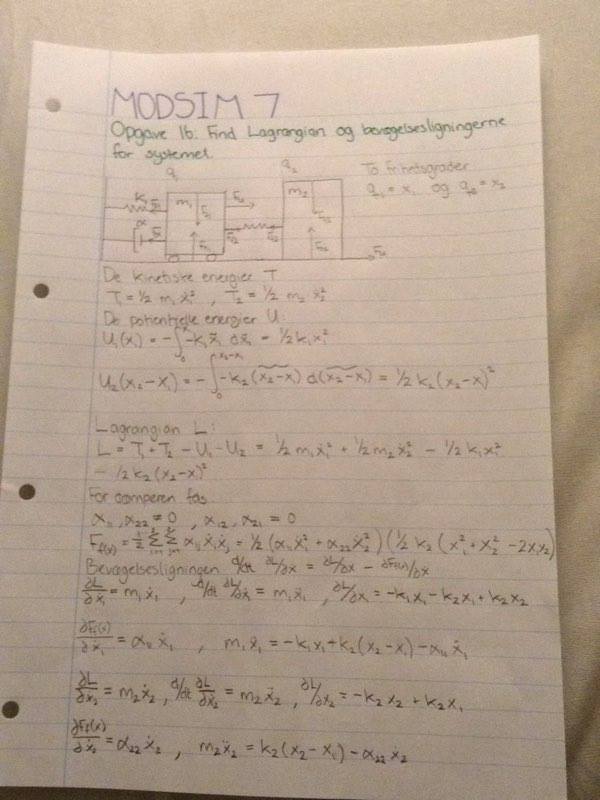 MODSIM 7
Opgave 1b: Find Lagrangian og bevægelsesligningerne
for systemet.
q₁ q₂ To frihetsgrader
q₁ = x₁ og q₂ = x₂
K₁ m₁ m₂
α
De kinetiske energier T
T₁ = 1/2 m₁ ẋ₁² , T₂ = 1/2 m₂ ẋ₂²
De potentielle energier U:
U₁(x) = -∫₀ˣ -k₁x̃₁ dx̃₁ = 1/2 k₁x₁²
U₂(x₂-x₁) = -∫₀^(x₂-x₁) -k₂(x₂-x₁)~ d(x₂-x₁)~ = 1/2 k₂(x₂-x₁)²
Lagrangian L:
L = T₁ + T₂ - U₁ - U₂ = 1/2 m₁ẋ₁² + 1/2 m₂ẋ₂² - 1/2 k₁x₁²
- 1/2 k₂(x₂-x₁)²
For damperen fås
α₁₁, α₂₂ ≠ 0 , α₁₂, α₂₁ = 0
= 1/2 ΣΣ ẋᵢẋⱼ = 1/2 (α₁₁ẋ₁² + α₂₂ẋ₂²) (1/2 k₂ (x₁² + x₂² - 2x₁x₂)
Bevægelsesligningen d/dt ∂L/∂ẋ = ∂L/∂x - ∂Ff(x)/∂ẋ
∂L/∂ẋ₁ = m₁ẋ₁ , d/dt ∂L/∂ẋ₁ = m₁ẍ₁ , ∂L/∂x₁ = -k₁x₁ - k₂x₁ + k₂x₂
∂Ff(x)/∂ẋ₁ = α₁₁ẋ₁ , m₁ẍ₁ = -k₁x₁ + k₂(x₂-x₁) - α₁₁ẋ₁
∂L/∂ẋ₂ = m₂ẋ₂ , d/dt ∂L/∂ẋ₂ = m₂ẍ₂ , ∂L/∂x₂ = -k₂x₂ + k₂x₁
∂Ff(x)/∂ẋ₂ = α₂₂ẋ₂ , m₂ẍ₂ = k₂(x₂-x₁) - α₂₂ẋ₂